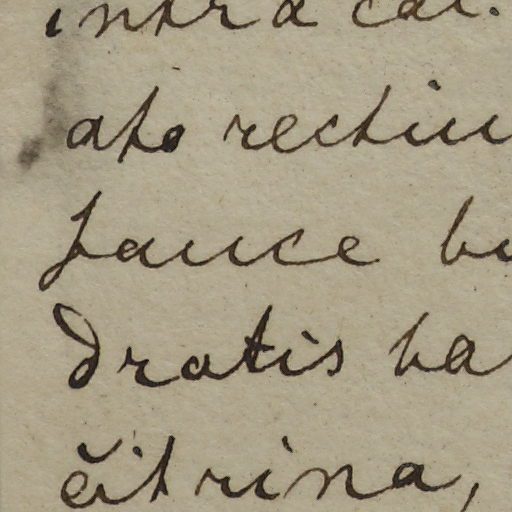 intra cal.
ato rectiu
fauce bu
dratis ba
citrina,